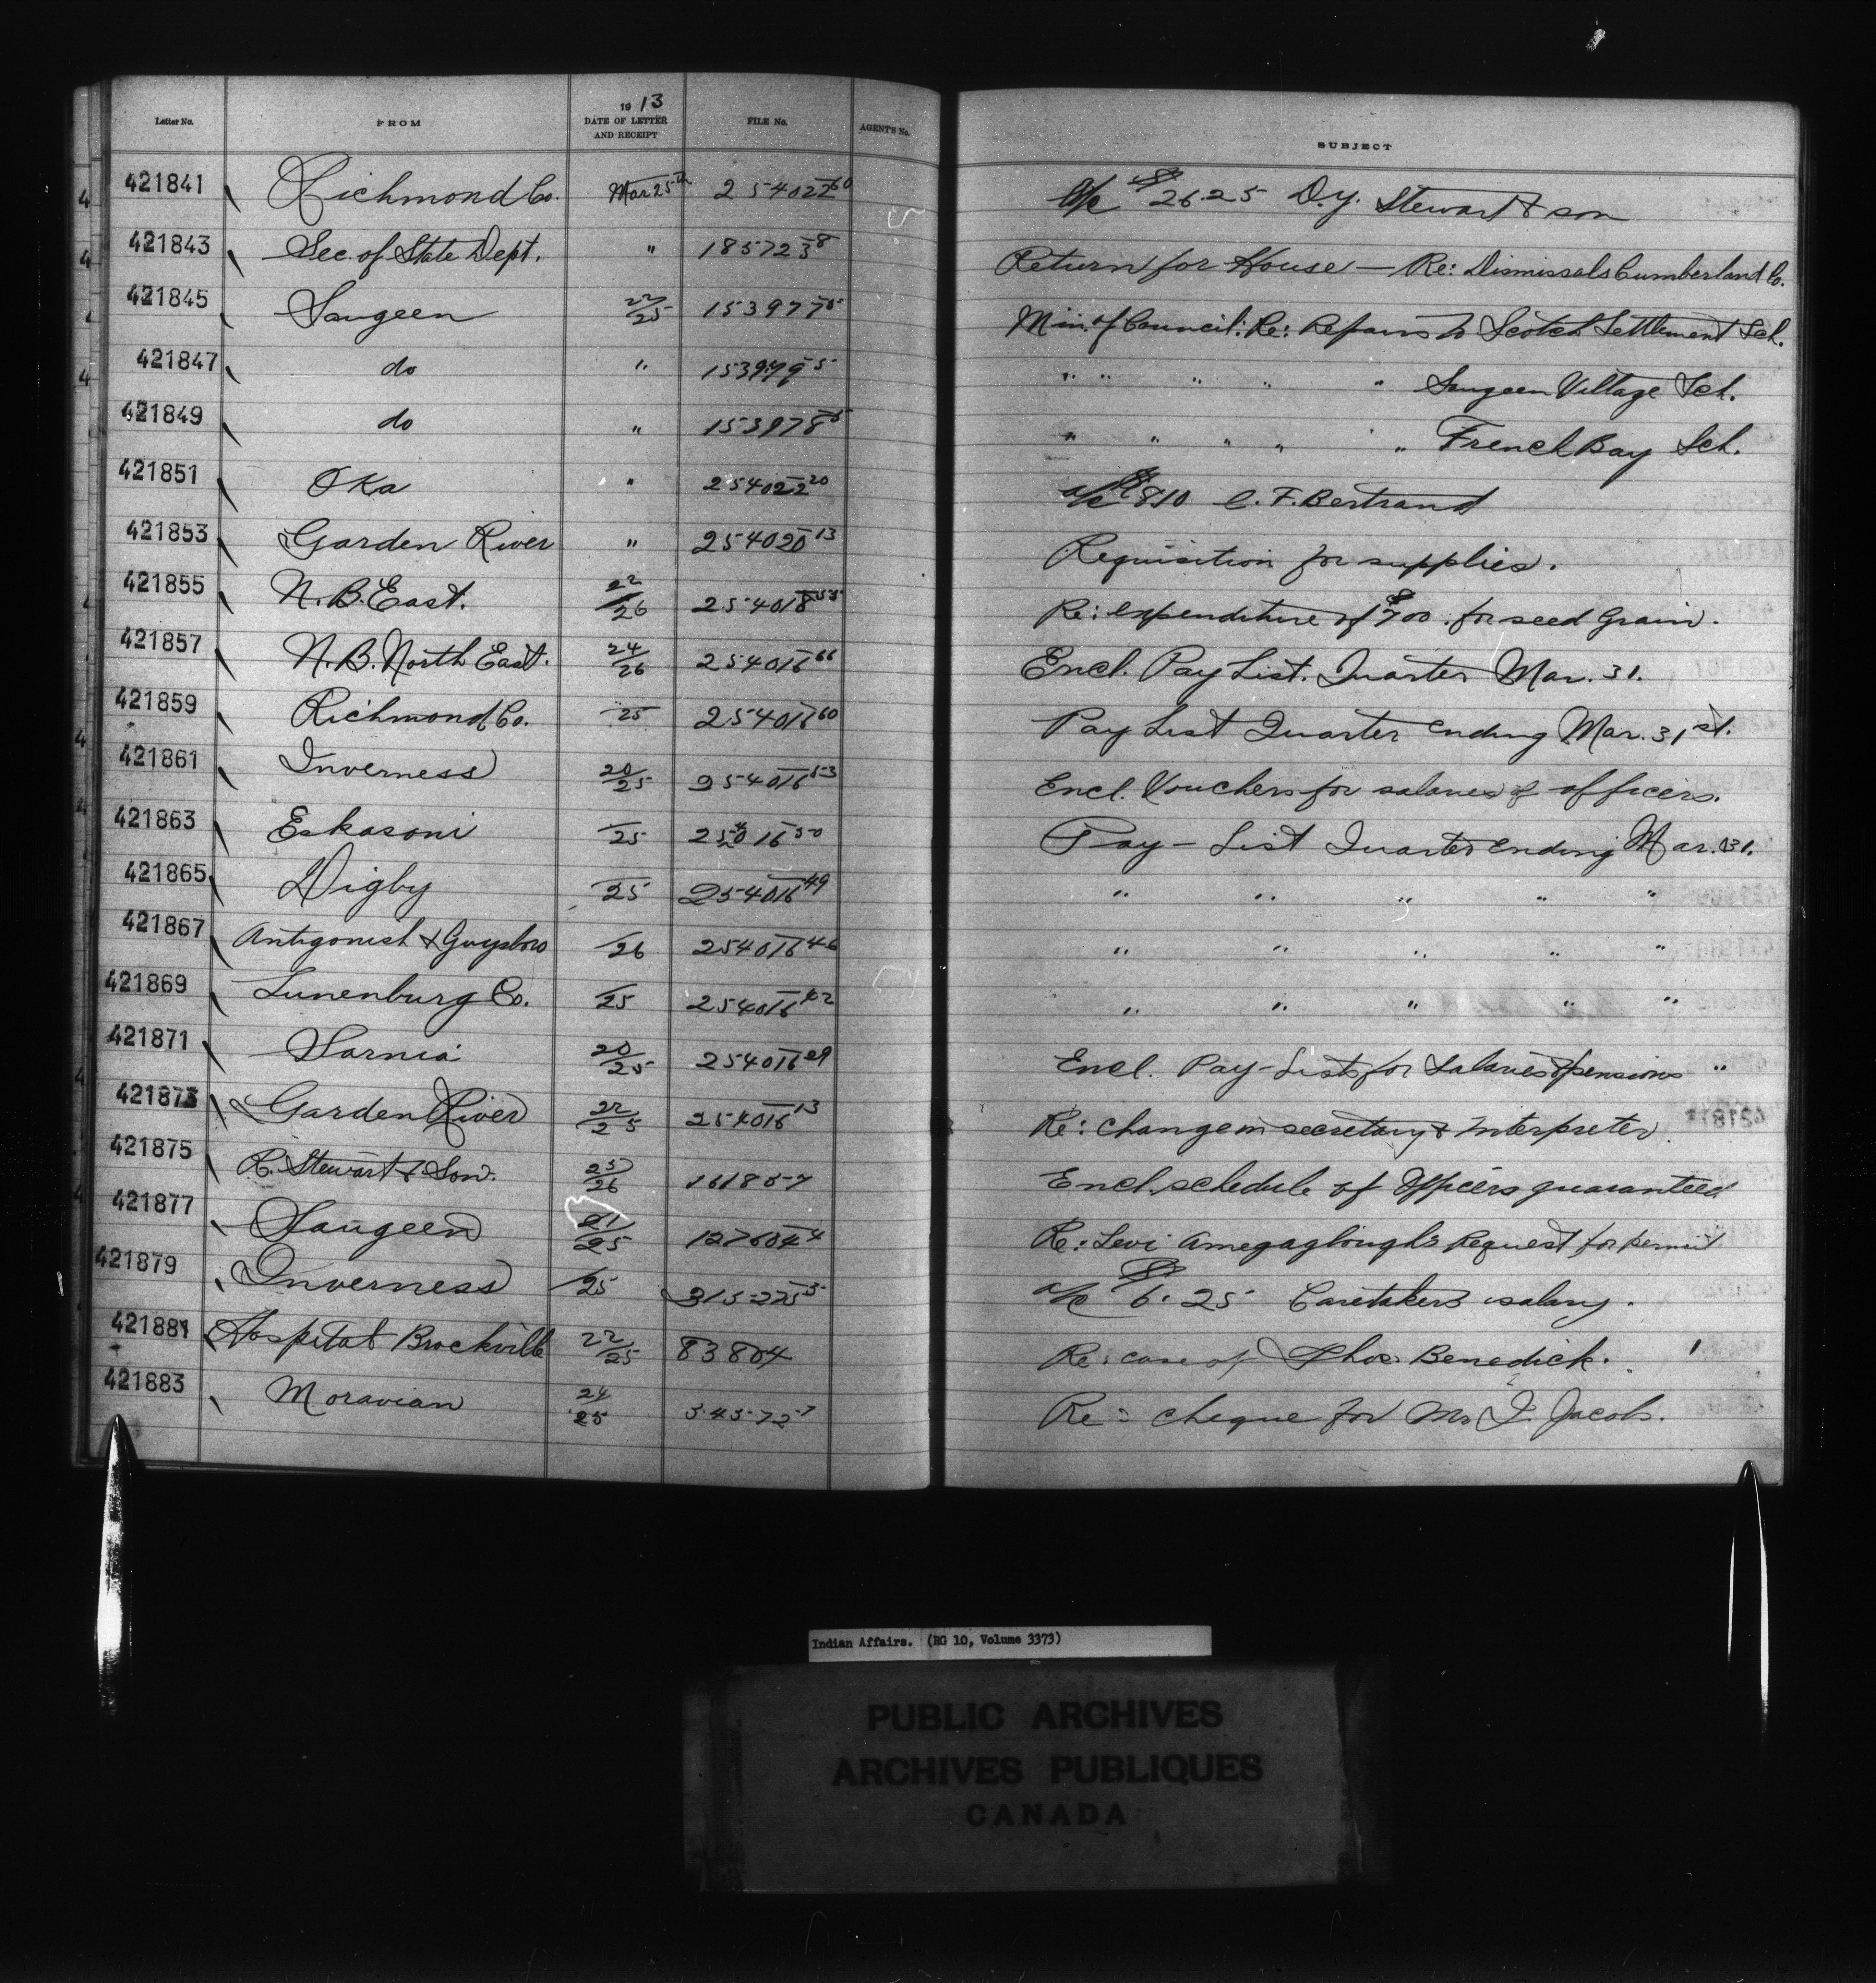 Letter No. FROM 1913 DATE OF LETTER AND RECEIPT FILE No. AGENT'S No. SUBJECT
421841 Richmond Co. Mar 25th 254022 60 a/c $26.25 D.Y. Stewart & son
421843 Sec. of State Dept. " 185723 8 Return for House — Re: Dismissals Cumberland Co.
421845 Saugeen 22/25 153977 5 Min. of Council: Re: Repairs to Scotch Settlement Sch.
421847 do " 153979 5 " " " " " Saugeen Village Sch.
421849 do " 153978 5 " " " " " French Bay Sch.
421851 Oka " 254022 20 a/c $810 C. F. Bertrand
421853 Garden River " 254020 13 Requisition for supplies.
421855 N. B. East. 22/26 254018 55 Re: expenditure of $700. for seed Grain.
421857 N. B. North East. 24/26 254016 66 Encl. Pay List. Quarter Mar. 31.
421859 Richmond Co. /25 254016 60 Pay List Quarter ending Mar. 31st.
421861 Inverness 20/25 254016 53 Encl. Vouchers for salaries of officers.
421863 Eskasoni /25 254016 50 Pay - List Quarter ending Mar. 31.
421865 Digby /25 254016 49 " " " " "
421867 Antigonish & Guysboro /26 254016 46 " " " " "
421869 Lunenburg Co. /25 254016 42 " " " " "
421871 Sarnia 20/25 254016 29 Encl. Pay-Lists for Salaries & pensions "
421873 Garden River 22/25 254016 13 Re: change in secretary & Interpreter.
421875 R. Stewart & Son. 25/26 161857 Encl. schedule of Officers guaranteed
421877 Saugeen 21/25 127604 4 Re: Levi Request for permit
421879 Inverness /25 315225 5 a/c $6.25 Caretakers salary.
421881 Hospital Brockville 22/25 83804 Re: case of Thos. Benedick.
421883 Moravian 24/25 34572 7 Re: cheque for Mr J. Jacobs.
Indian Affairs. (RG 10, Volume 3373)
PUBLIC ARCHIVES
ARCHIVES PUBLIQUES
CANADA